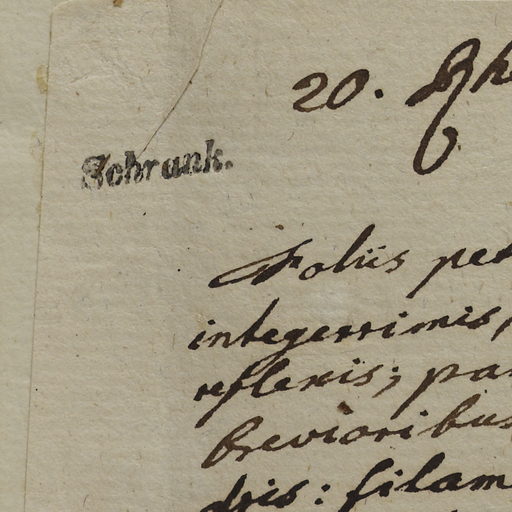 20. Rh
Schrank.
Foliis pet
integerrimis,
reflexis; pa
brevioribus
dris: filam